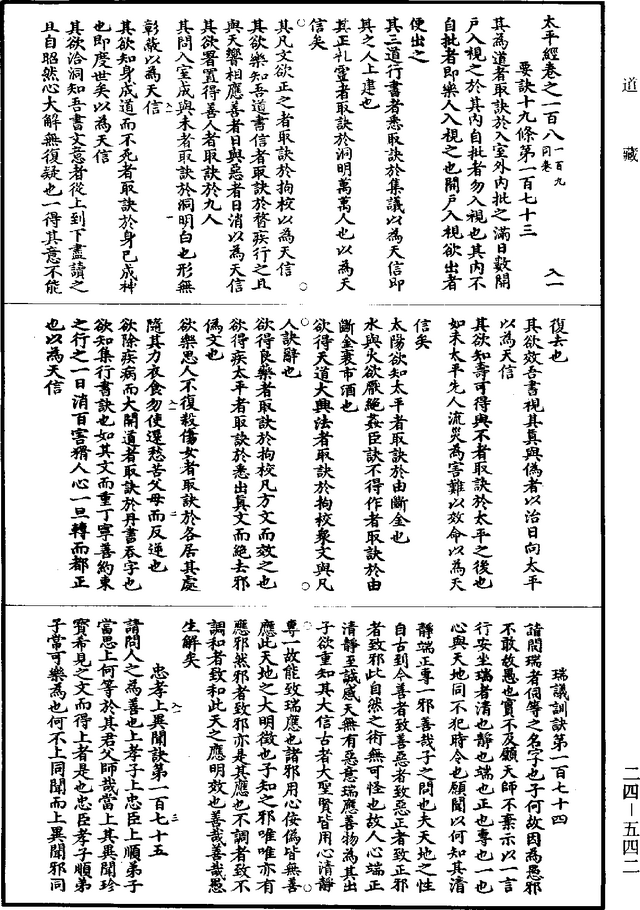 道藏
太平經卷之一百八 一百九同卷 入一
要訣十九條第一百七十三
其為道者取訣於入室外內批之滿日數開
戶入視之於其內自批者勿入視也其內不
自批者即樂人入視之也開戶入視欲出者
便出之
其三道行書者悉取訣於集議以為天信即
其之人上建也
其正礼靈者取訣於洞明萬萬人也以為天
信矣
其凡文欲正之者取訣於拘校以為天信
其欲樂知吾道書信者取訣於瞀疾行之且
與天響相應善者日與惡者日消以為天信
其欲署置得善人者取訣於九人
其問入室成與未者取訣於洞明白也形無
彰蔽以為天信
其欲知身成道而不死者取訣於身已成神
也即度世矣以為天信
其欲洽洞知吾書文意者從上到下盡讀之
且自昭然心大解無復疑也一得其意不能
復去也
其欲效吾書視其真與偽者以治日向太平
以為天信
其欲知壽可得與不者取訣於太平之後也
如未太平先人流災為害難以效命以為天
信矣
太陽欲知太平者取訣於由斷金也
水與火欲厭絕姦臣訣不得作者取訣於由
斷金衰市酒也
欲得天道大興法者取訣於拘校眾文與凡
人訣辭也
欲得良藥者取訣於拘校凡方文而效之也
欲得疾太平者取訣於悉出真文而絕去邪
偽文也
欲樂思人不復殺傷女者取訣於各居其處
隨其力衣食勿使還愁苦父母而反逆也
欲除疾病而大開道者取訣於丹書吞字也
欲知集行書訣也如其文而重丁寧善約束
之行之一日消百害猾人心一旦轉而都正
也以為天信
瑞議訓訣第一百七十四
請問瑞者何等之名字也子何故因為愚邪
不敢故愚也實不及願天師不棄示以一言
行安坐瑞者清也靜也端也正也專也一也
心與天地同不犯時令也願聞以何知其清
靜端正專一邪善哉子之問也夫天地之性
自古到今善者致善惡者致惡正者致正邪
者致邪此自然之術無可怪也故人心端正
清靜至誠感天無有惡意瑞應善物為其出
子欲重知其大信古者大聖賢皆用心清靜
專一故能致瑞應也諸邪用心佞偽皆無善
應此天地之大明徵也子知之邪唯唯亦有
應邪然邪者致邪亦是其應也不調者致不
調和者致和此天之應明效也善哉善哉愚
生解矣
忠孝上異聞訣第一百七十五
請問人之為善也上孝子上忠臣上順弟子
當思上何等於其君父師哉當上其異聞珍
寶希見之文而得上者是也忠臣孝子順弟
子常可樂為也何不上同聞而上異聞邪同
二四—五四二